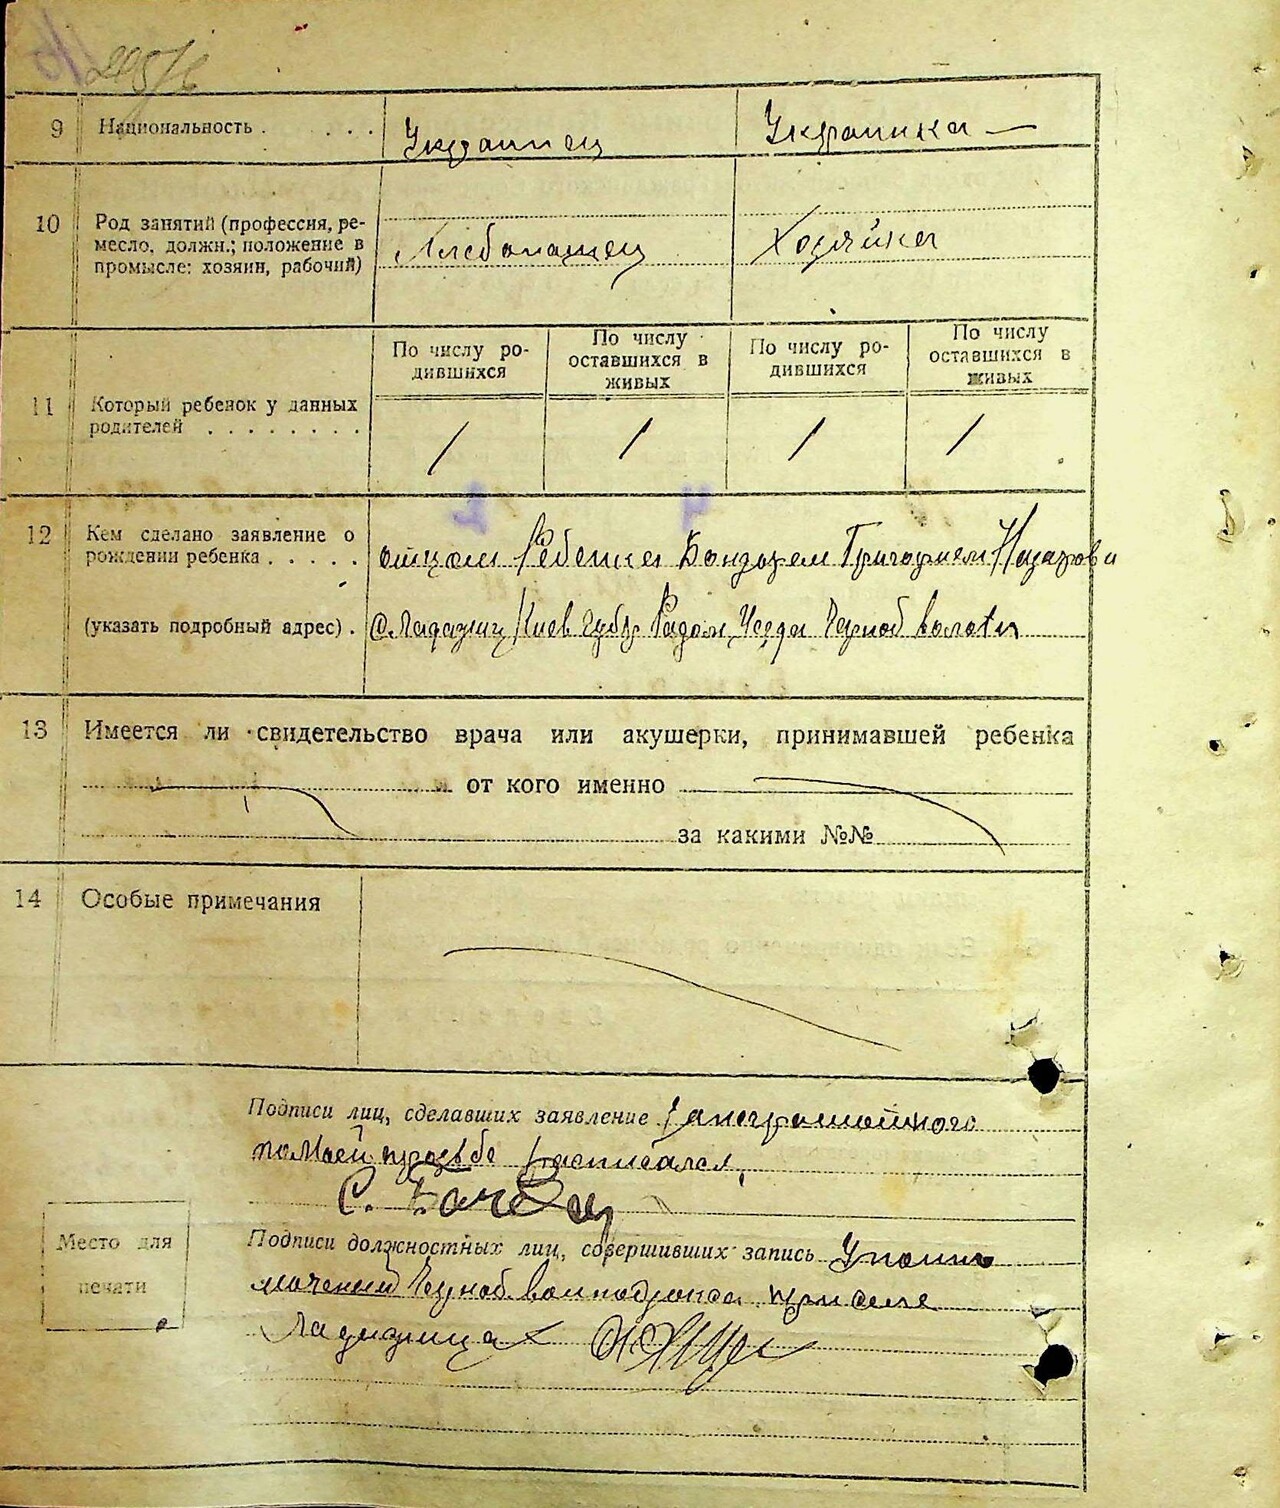 9 Национальность . . . . . Украинец Украинка —
10 Род занятий (профессия, ре-
месло, должн.; положение в
промысле: хозяин, рабочий)
Хлебопашец Хозяйка
По числу ро-
дившихся
По числу
оставшихся в
живых
По числу ро-
дившихся
По числу
оставшихся в
живых
11 Который ребенок у данных
родителей . . . . . . . .
1 1 1 1
2 4
12 Кем сделано заявление о
рождении ребенка . . . . .
отцом Ребенка Бондарем Григорием Назарови
(указать подробный адрес) . с. Ладыжич Киев Губ Радом, Уезда Черноб волости
13 Имеется ли свидетельство врача или акушерки, принимавшей ребенка
от кого именно
за какими №№
14 Особые примечания
Подписи лиц, сделавших заявление неграмотного
по Моей просьбе Расписался,
С.
Подписи должностных лиц, совершивших запись Уполно
моченый Черноб. при селе
Ладижичах
Место для
печати